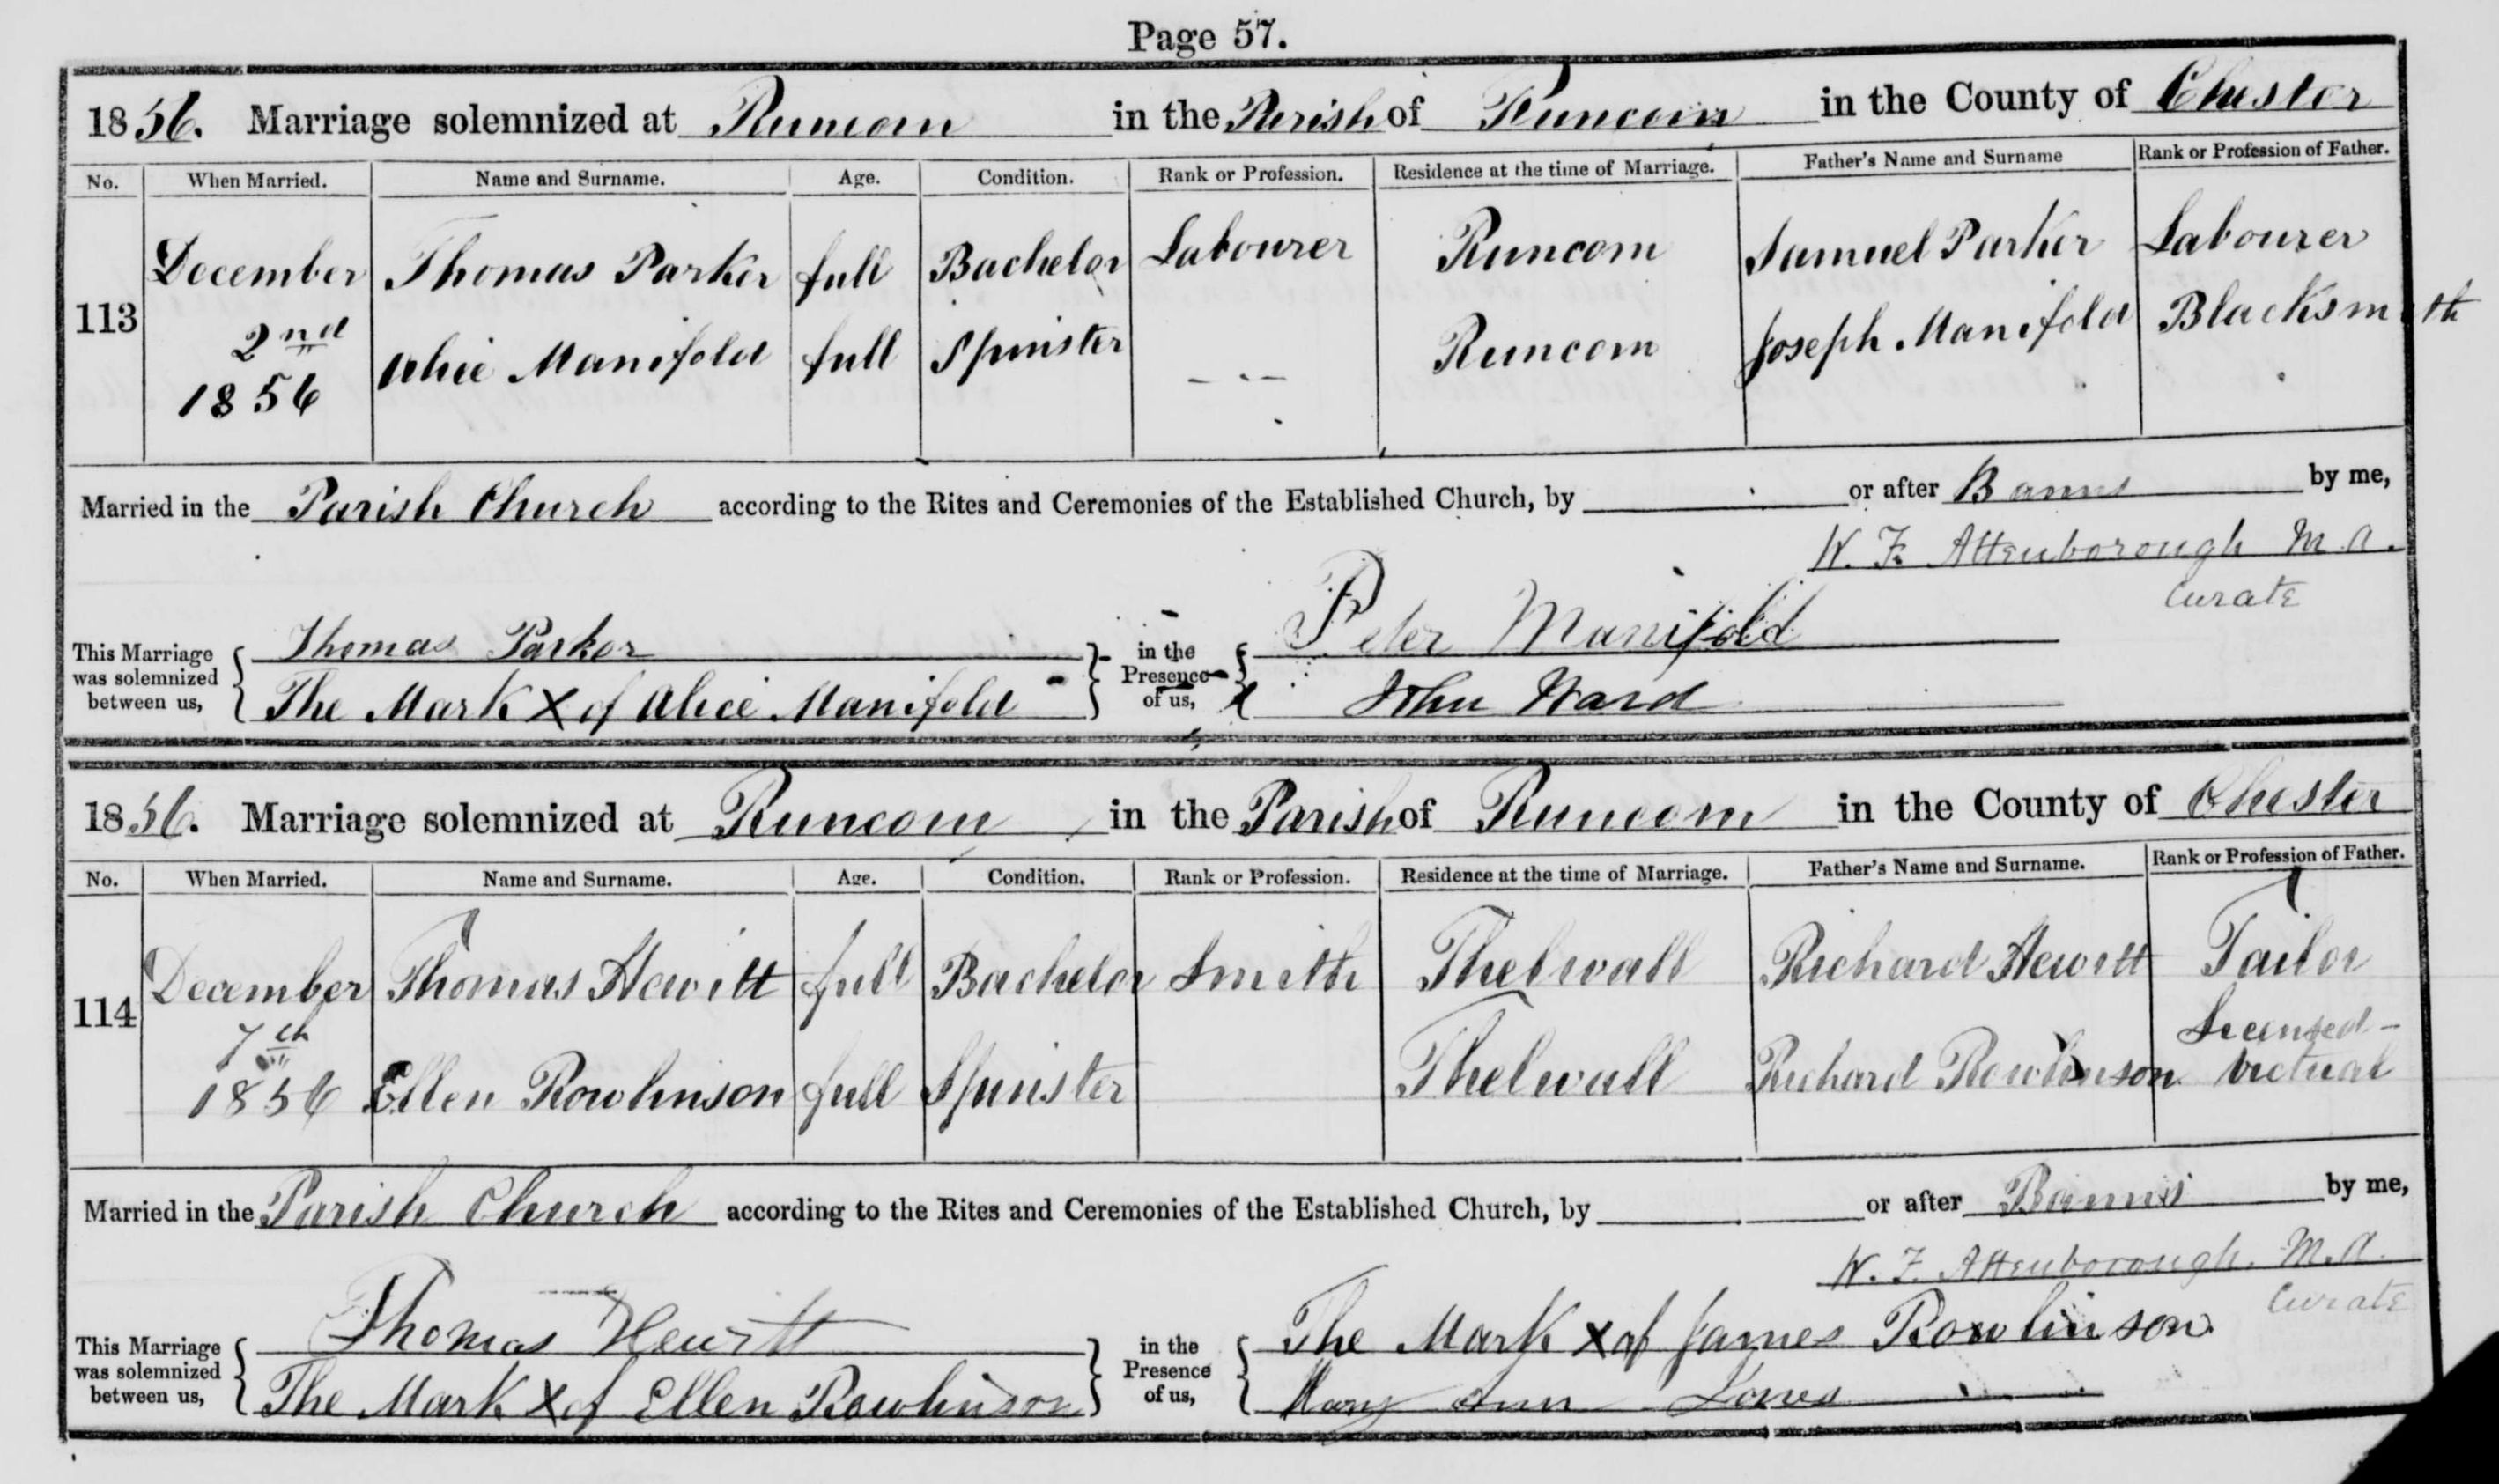 Page 57.
1856. Marriage solemnized at Runcorn in the Parish of Runcorn in the County of Chester
No. When Married. Name and Surname. Age. Condition. Rank or Profession. Residence at the time of Marriage. Father's Name and Surname Rank or Profession of Father.
113 December 2nd 1856 Thomas Parker full Bachelor Labourer Runcorn Samuel Parker Labourer
Alice Manifold full Spinster Runcorn Joseph Manifold Blacksmith
Married in the Parish Church according to the Rites and Ceremonies of the Established Church, by or after Banns by me,
W. F. Attenborough M.A.
Curate
This Marriage was solemnized between us, Thomas Parker in the Presence of us, Peter Manifold
The Mark X of Alice Manifold John Ward
1856. Marriage solemnized at Runcorn in the Parish of Runcorn in the County of Chester
No. When Married. Name and Surname. Age. Condition. Rank or Profession. Residence at the time of Marriage. Father's Name and Surname. Rank or Profession of Father.
114 December 7th 1856 Thomas Hewitt full Bachelor Smith Thelwall Richard Hewitt Tailor
Ellen Rowlinson full Spinster Thelwall Richard Rowlinson Licensed Victual
Married in the Parish Church according to the Rites and Ceremonies of the Established Church, by or after Banns by me,
W. F. Attenborough. M.A.
Curate
This Marriage was solemnized between us, Thomas Hewitt in the Presence of us, The Mark X of James Rowlinson
The Mark X of Ellen Rowlinson Mary Ann